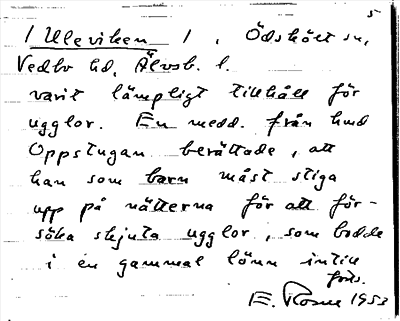 5
/ Uleviken /, Ödskölt sn,
Vedbo hd, Älvsb. l.
varit lämpligt tillhåll för
ugglor. En medd. från hmd
Oppstugan berättade, att
han som barn måst stiga
upp på nätterna för att för-
söka skjuta ugglor, som bodde
i en gammal lönn intill
forts.
E. Rosne 1953